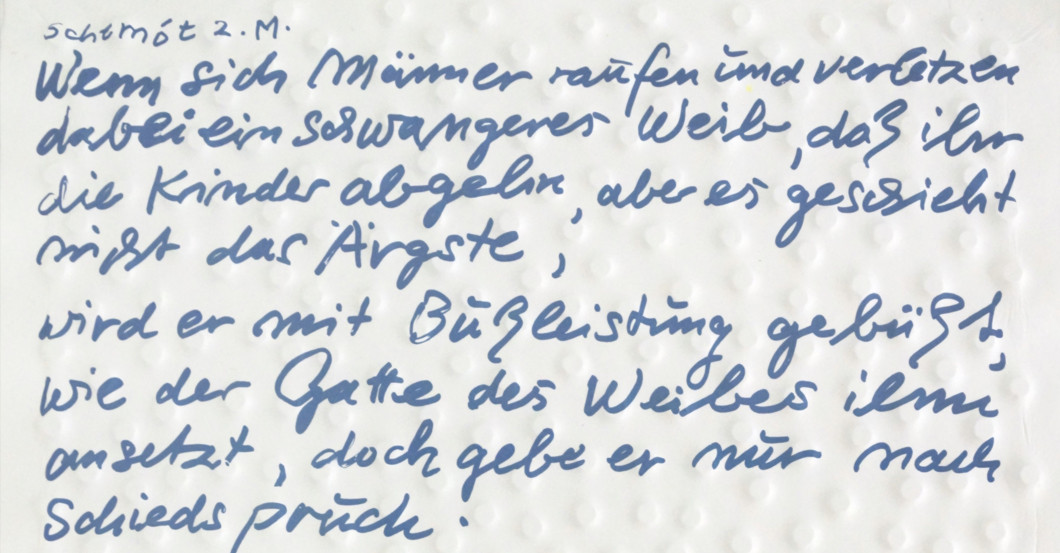 schemót 2. M.
Wenn sich Männer raufen und verletzen
dabei ein schwangeres Weib, daß ihr
die Kinder abgehn, aber es geschieht
nicht das Ärgste,
wird er mit Büßleistung gebüßt,
wie der Gatte des Weibes ihm
ansetzt, doch gebe er nur nach
Schiedspruch.